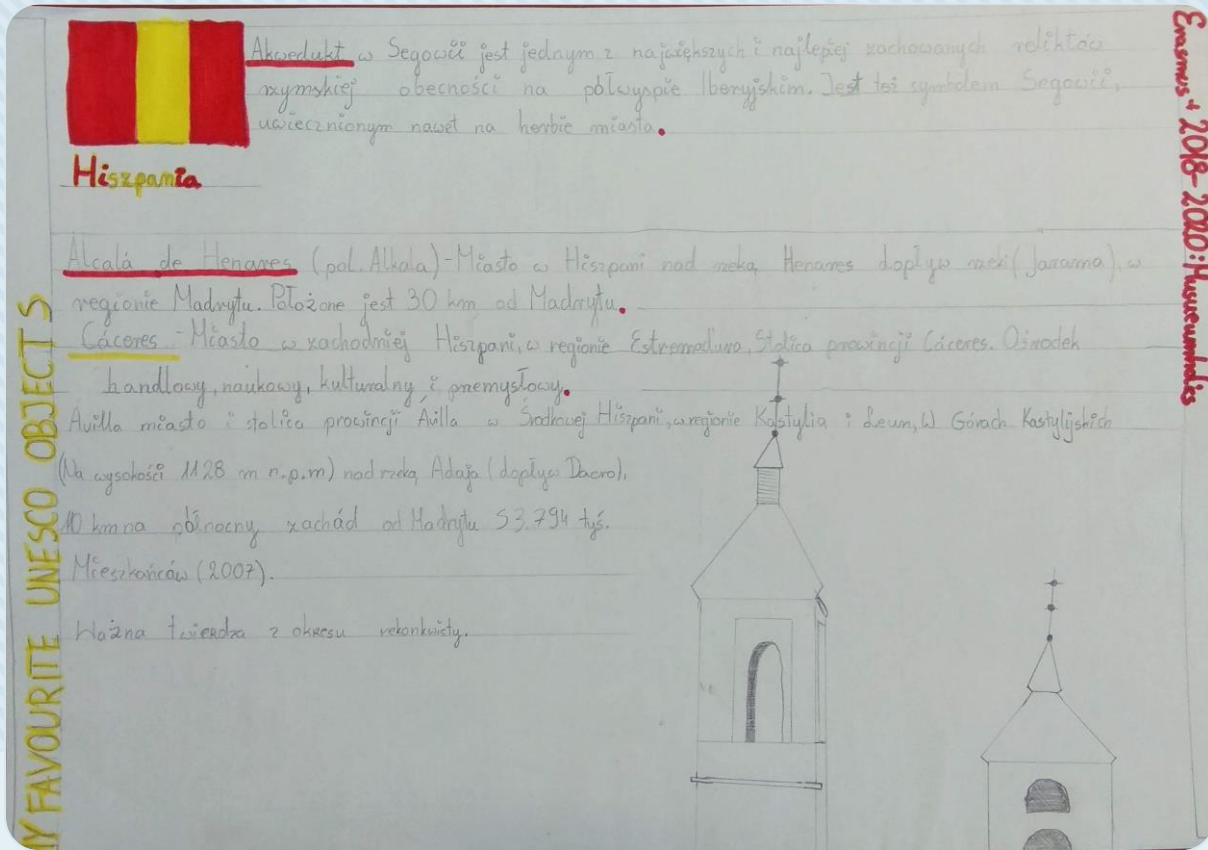 Akwedukt w Segowii jest jednym z największych i najlepiej zachowanych reliktów
rzymskiej obecności na półwyspie Iberyjskim. Jest też symbolem Segowii,
uwiecznionym nawet na herbie miasta.
Hiszpania
Alcalá de Henares (pol. Alkala)-Miasto w Hiszpani nad rzeką Henares dopływ rzeki (Jarama), w
regionie Madrytu. Położone jest 30 km od Madrytu.
Cáceres - Miasto w zachodniej Hiszpani, w regionie Estremadura, Stolica prowincji Cáceres. Ośrodek
handlowy, naukowy, kulturalny i przemysłowy.
Avilla miasto i stolica prowincji Avilla w Środkowej Hiszpani, w regionie Kastylia i Leun, W Górach Kastylijskich
(Na wysokości 1128 m n.p.m) nad rzeką Adaja (dopływ Dacro),
10 km na północny zachód od Madrytu 53.794 tyś.
Mieszkańców (2007).
Ważna twierdza z okresu rekonkwisty.
MY FAVOURITE UNESCO OBJECTS
Erasmus+ 2018-2020: